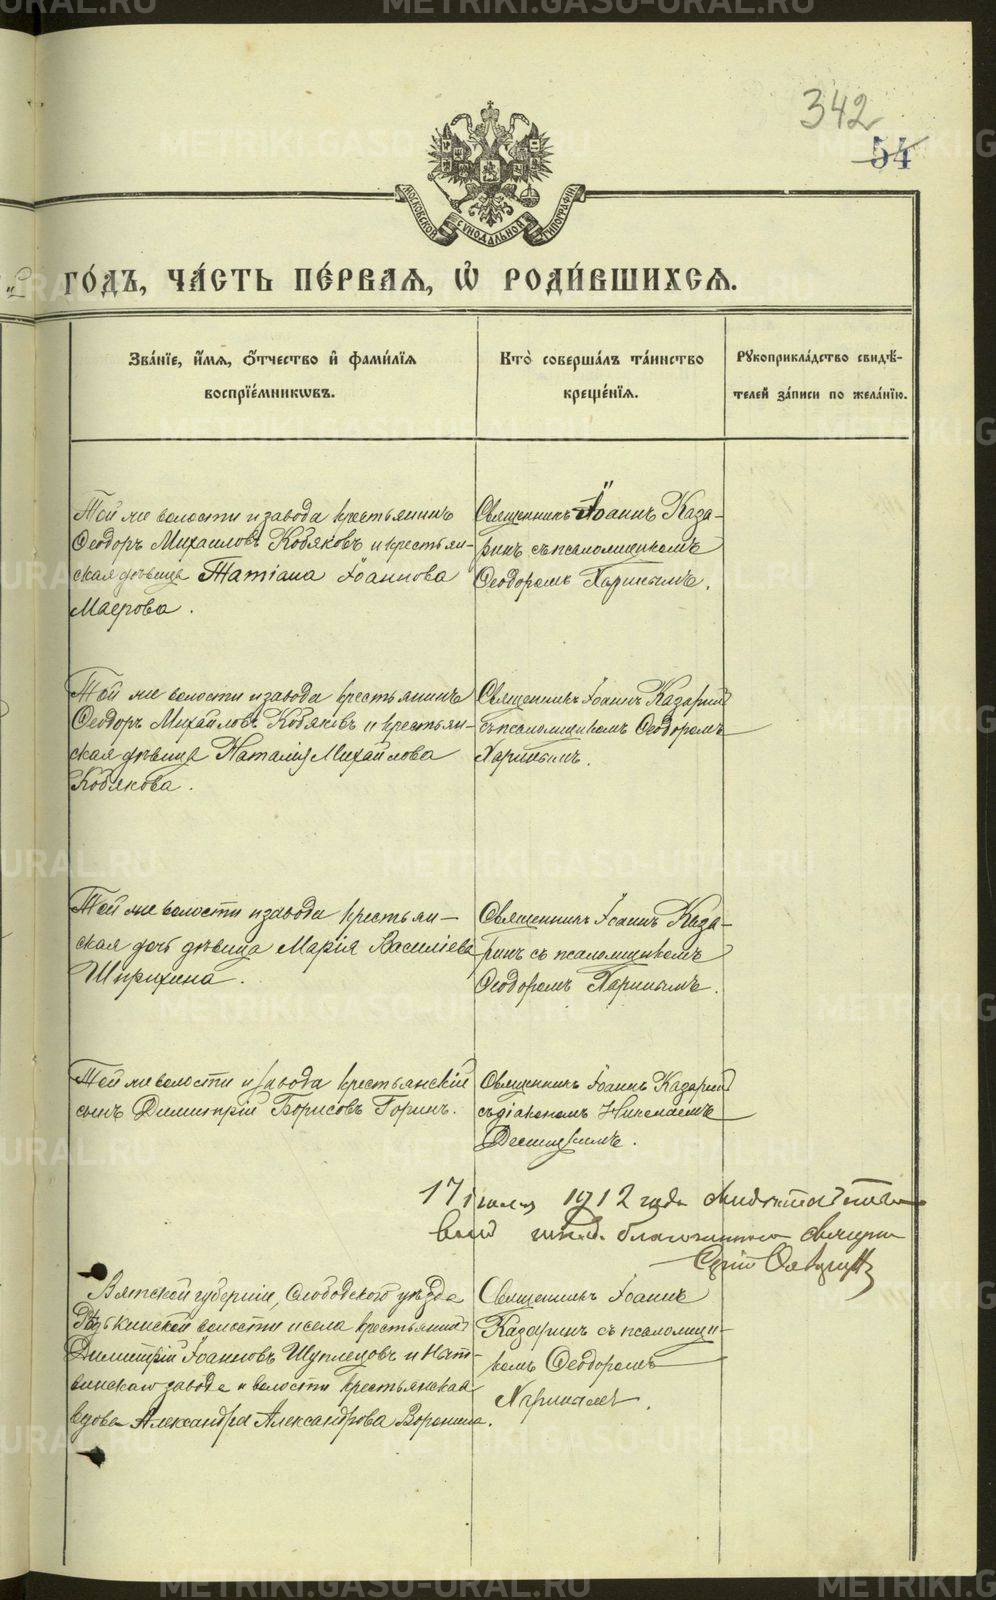 METRIKI.GASO-URAL.RU
342
54
МОСКОВСКОЙ СѴНОДАЛЬНОЙ ТИПОГРАФІИ
ГО́ДЪ, ЧА́СТЬ ПЕ́РВАЯ, Ѡ҆ РОДИ́ВШИХСЯ.
Зва́нїе, и҆́мя, ѻ҆́тчество и҆ фами́лїя
воспрїе́мникѡвъ.
Кто̀ соверша́лъ та́инство
креще́нїя.
Рꙋкоприкла́дство свидѣ́-
телей за́писи по жела́нїю.
Той же волости и завода крестьянинъ
Ѳеодоръ Михаиловъ Кобяковъ и крестьян-
ская дѣвица Татіана Іоаннова
Маерова.
Священникъ Іоаннъ Каза-
ринъ съ псаломщикомъ
Ѳеодоромъ Харинымъ.
Той же волости и завода крестьянинъ
Ѳеодоръ Михайловъ Кобяковъ и крестьян-
ская дѣвица Наталія Михайлова
Кобякова.
Священникъ Іоаннъ Казаринъ
съ псаломщикомъ Ѳеодоромъ
Харинымъ.
Той же волости и завода крестьян-
ская дочь дѣвица Марія Василіева
Ширихина.
Священникъ Іоаннъ Каза-
ринъ съ псаломщикомъ
Ѳеодоромъ Харинымъ.
Той же волости и завода крестьянскій
сынъ Димитрій Борисовъ Горинъ.
Священникъ Іоаннъ Казаринъ
съ діакономъ Николаемъ
17 іюля 1912 года
благочинный
Вятской губерніи, Слободского уѣзда
волости и села крестьянинъ
Димитрій Іоанновъ Шуплецовъ и Нат-
винскаго завода и волости крестьянская
вдова Александра Александрова Воронина.
Священникъ Іоаннъ
Казаринъ съ псаломщи-
комъ Ѳеодоромъ
Харинымъ.